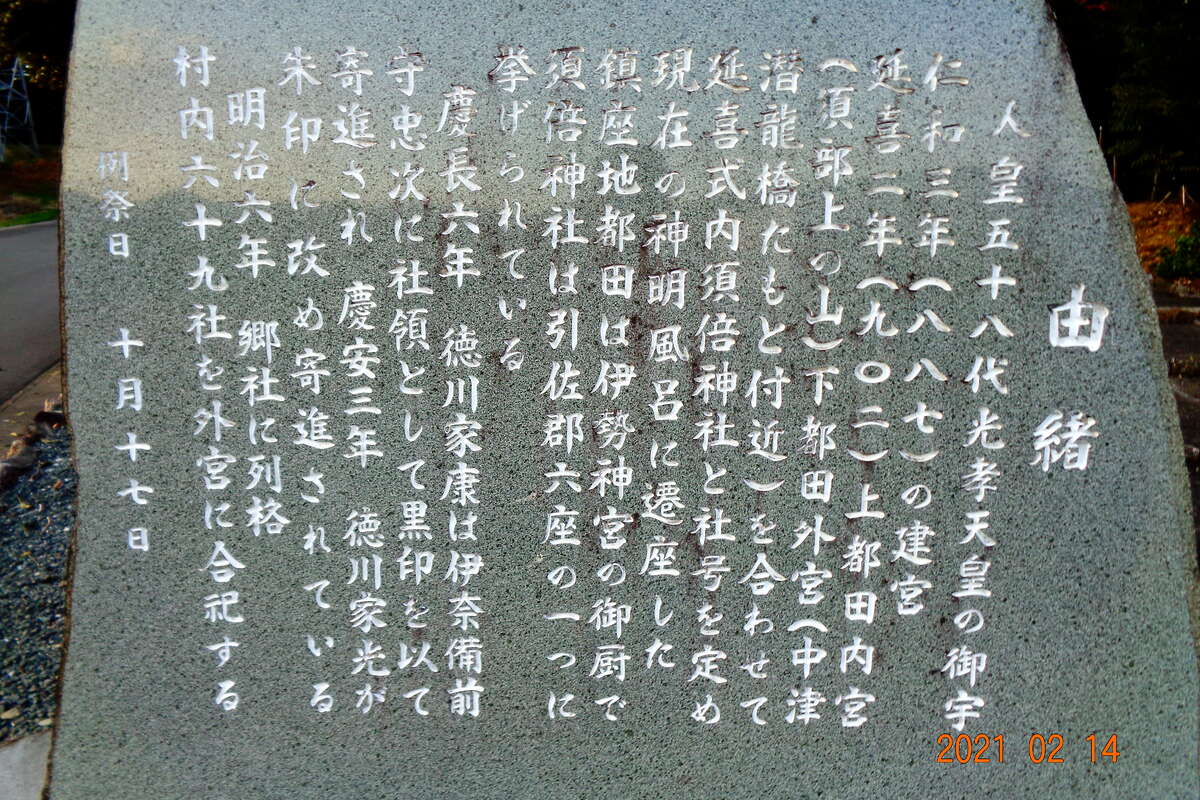 由緒
人皇五十八代光孝天皇の御宇
仁和三年(八八七)の建宮
延喜二年(九〇二)上都田内宮
(須部上の山)下都田外宮(中津
潜龍橋たもと付近)を合わせて
延喜式内須倍神社と社号を定め
現在の神明風呂に遷座した
鎮座地都田は伊勢神宮の御厨で
須倍神社は引佐郡六座の一つに
挙げられている
慶長六年 徳川家康は伊奈備前
守忠次に社領として黒印を以て
寄進され 慶安三年 徳川家光が
朱印に改め寄進されている
明治六年 郷社に列格
村内六十九社を外宮に合祀する
例祭日 十月十七日
2021 02 14